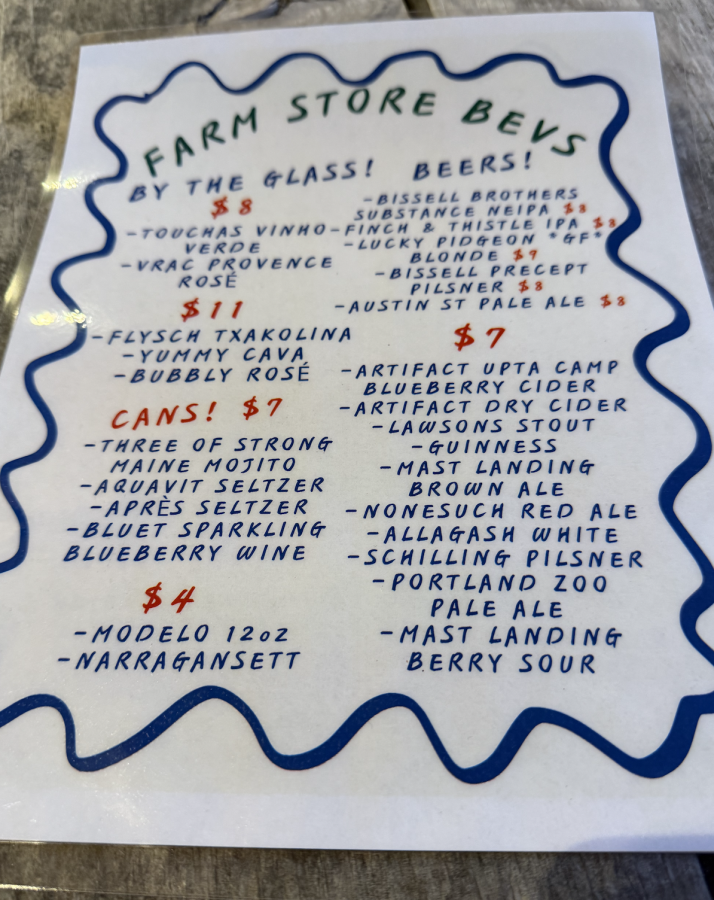 FARM STORE BEVS
BY THE GLASS!
$8
-TOUCHAS VINHO
VERDE
-VRAC PROVENCE
ROSÉ
$11
-FLYSCH TXAKOLINA
-YUMMY CAVA
-BUBBLY ROSÉ
CANS! $7
-THREE OF STRONG
MAINE MOJITO
-AQUAVIT SELTZER
-APRÈS SELTZER
-BLUET SPARKLING
BLUEBERRY WINE
$4
-MODELO 12oz
-NARRAGANSETT
BEERS!
-BISSELL BROTHERS
SUBSTANCE NEIPA $8
-FINCH & THISTLE IPA $8
-LUCKY PIDGEON *GF*
BLONDE $9
-BISSELL PRECEPT
PILSNER $8
-AUSTIN ST PALE ALE $8
$7
-ARTIFACT UPTA CAMP
BLUEBERRY CIDER
-ARTIFACT DRY CIDER
-LAWSONS STOUT
-GUINNESS
-MAST LANDING
BROWN ALE
-NONESUCH RED ALE
-ALLAGASH WHITE
-SCHILLING PILSNER
-PORTLAND ZOO
PALE ALE
-MAST LANDING
BERRY SOUR